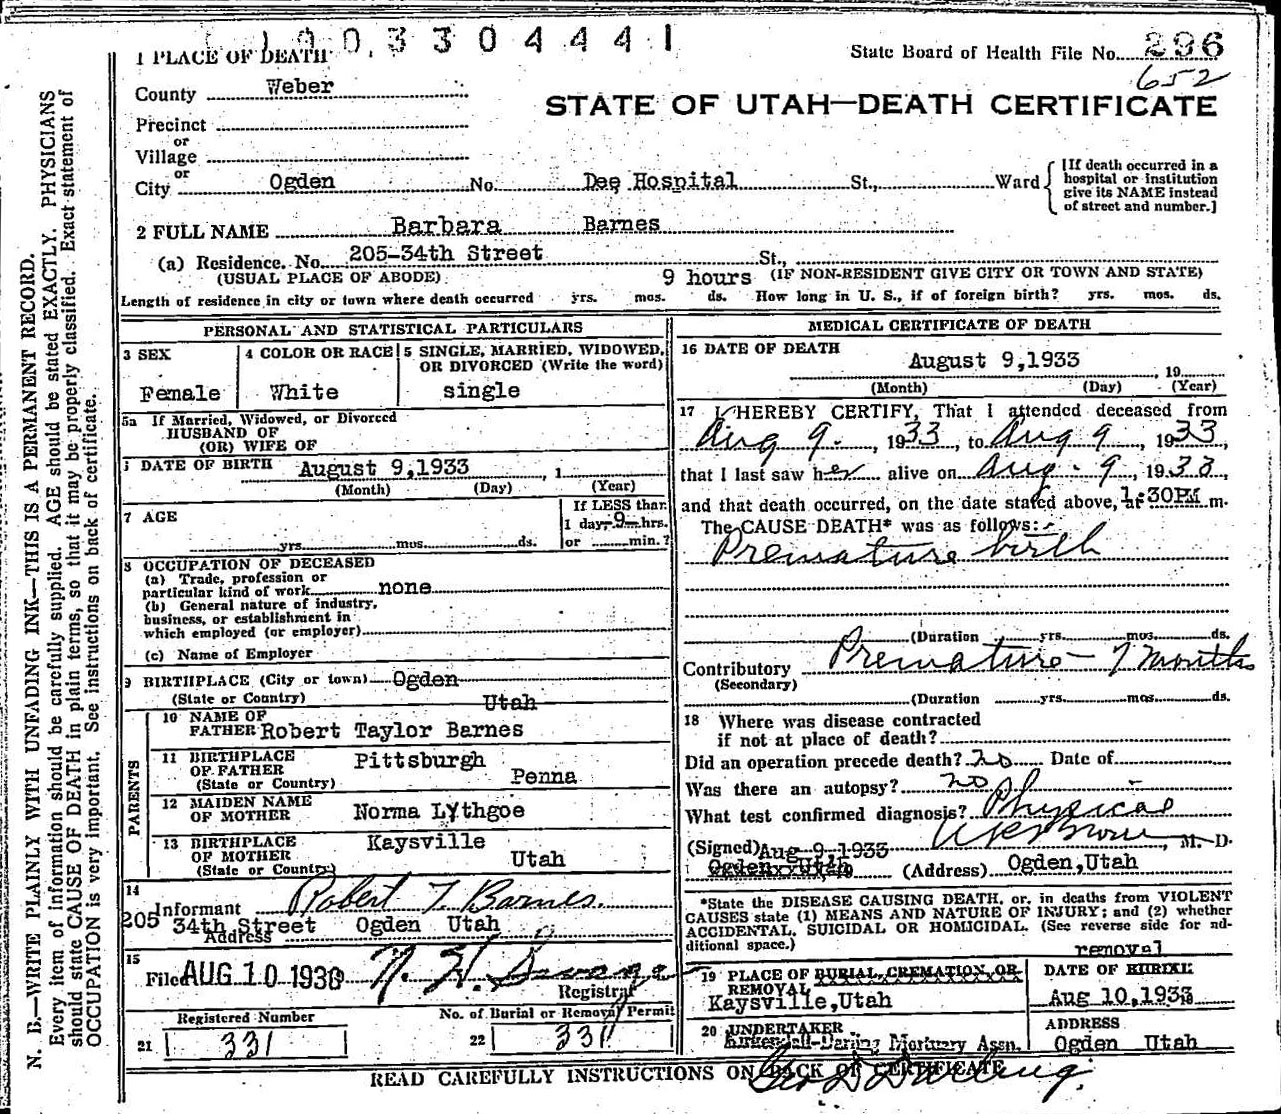 1003304441
1 PLACE OF DEATH
State Board of Health File No. 296
652
County Weber
STATE OF UTAH—DEATH CERTIFICATE
Precinct
or
Village
or
City Ogden No. Dee Hospital St., Ward
[If death occurred in a
hospital or institution
give its NAME instead
of street and number.]
2 FULL NAME Barbara Barnes
(a) Residence. No. 205-34th Street St.,
(USUAL PLACE OF ABODE) 9 hours (IF NON-RESIDENT GIVE CITY OR TOWN AND STATE)
Length of residence in city or town where death occurred yrs. mos. ds. How long in U. S., if of foreign birth? yrs. mos. ds.
PERSONAL AND STATISTICAL PARTICULARS
3 SEX
Female
4 COLOR OR RACE
White
5 SINGLE, MARRIED, WIDOWED,
OR DIVORCED (Write the word)
single
5a If Married, Widowed, or Divorced
HUSBAND OF
(OR) WIFE OF
DATE OF BIRTH August 9,1933, 1
(Month) (Day) (Year)
7 AGE
yrs. mos. ds.
If LESS than
1 day, -9- hrs.
or min.?
8 OCCUPATION OF DECEASED
(a) Trade, profession or
particular kind of work none
(b) General nature of industry,
business, or establishment in
which employed (or employer)
(c) Name of Employer
9 BIRTHPLACE (City or town) Ogden
(State or Country) Utah
PARENTS
10 NAME OF
FATHER Robert Taylor Barnes
11 BIRTHPLACE
OF FATHER
(State or Country)
Pittsburgh
Penna
12 MAIDEN NAME
OF MOTHER
Norma Lythgoe
13 BIRTHPLACE
OF MOTHER
(State or Country)
Kaysville
Utah
14
Informant Robert T. Barnes.
205 34th Street Ogden Utah
Address
15
Filed AUG 10 1933
Registrar
Registered Number
21 331
No. of Burial or Removal Permit
22 331
MEDICAL CERTIFICATE OF DEATH
16 DATE OF DEATH
August 9,1933, 19
(Month) (Day) (Year)
17 I HEREBY CERTIFY, That I attended deceased from
Aug 9., 1933, to Aug 9, 1933,
that I last saw her alive on Aug. 9, 1933,
and that death occurred, on the date stated above, at 1:30PM m.
The CAUSE DEATH* was as follows:
Premature birth
(Duration yrs. mos. ds.
Contributory Premature - 7 months
(Secondary)
(Duration yrs. mos. ds.
18 Where was disease contracted
if not at place of death?
Did an operation precede death? no Date of
Was there an autopsy? no
What test confirmed diagnosis? Physical
(Signed) , M. D.
Aug 9, 1933
Ogden, Utah, 19 (Address) Ogden,Utah
*State the DISEASE CAUSING DEATH, or, in deaths from VIOLENT
CAUSES state (1) MEANS AND NATURE OF INJURY; and (2) whether
ACCIDENTAL, SUICIDAL OR HOMICIDAL. (See reverse side for ad-
ditional space.)
removal
19 PLACE OF BURIAL, CREMATION, OR
REMOVAL
Kaysville,Utah
DATE OF BURIAL
Aug 10,1933
20 UNDERTAKER
Kirkendall-Darling Mortuary Assn.
ADDRESS
Ogden Utah
Geo D Darling.
READ CAREFULLY INSTRUCTIONS ON BACK OF CERTIFICATE
N. B.—WRITE PLAINLY WITH UNFADING INK—THIS IS A PERMANENT RECORD.
Every item of information should be carefully supplied. AGE should be stated EXACTLY. PHYSICIANS
should state CAUSE OF DEATH in plain terms, so that it may be properly classified. Exact statement of
OCCUPATION is very important. See instructions on back of certificate.